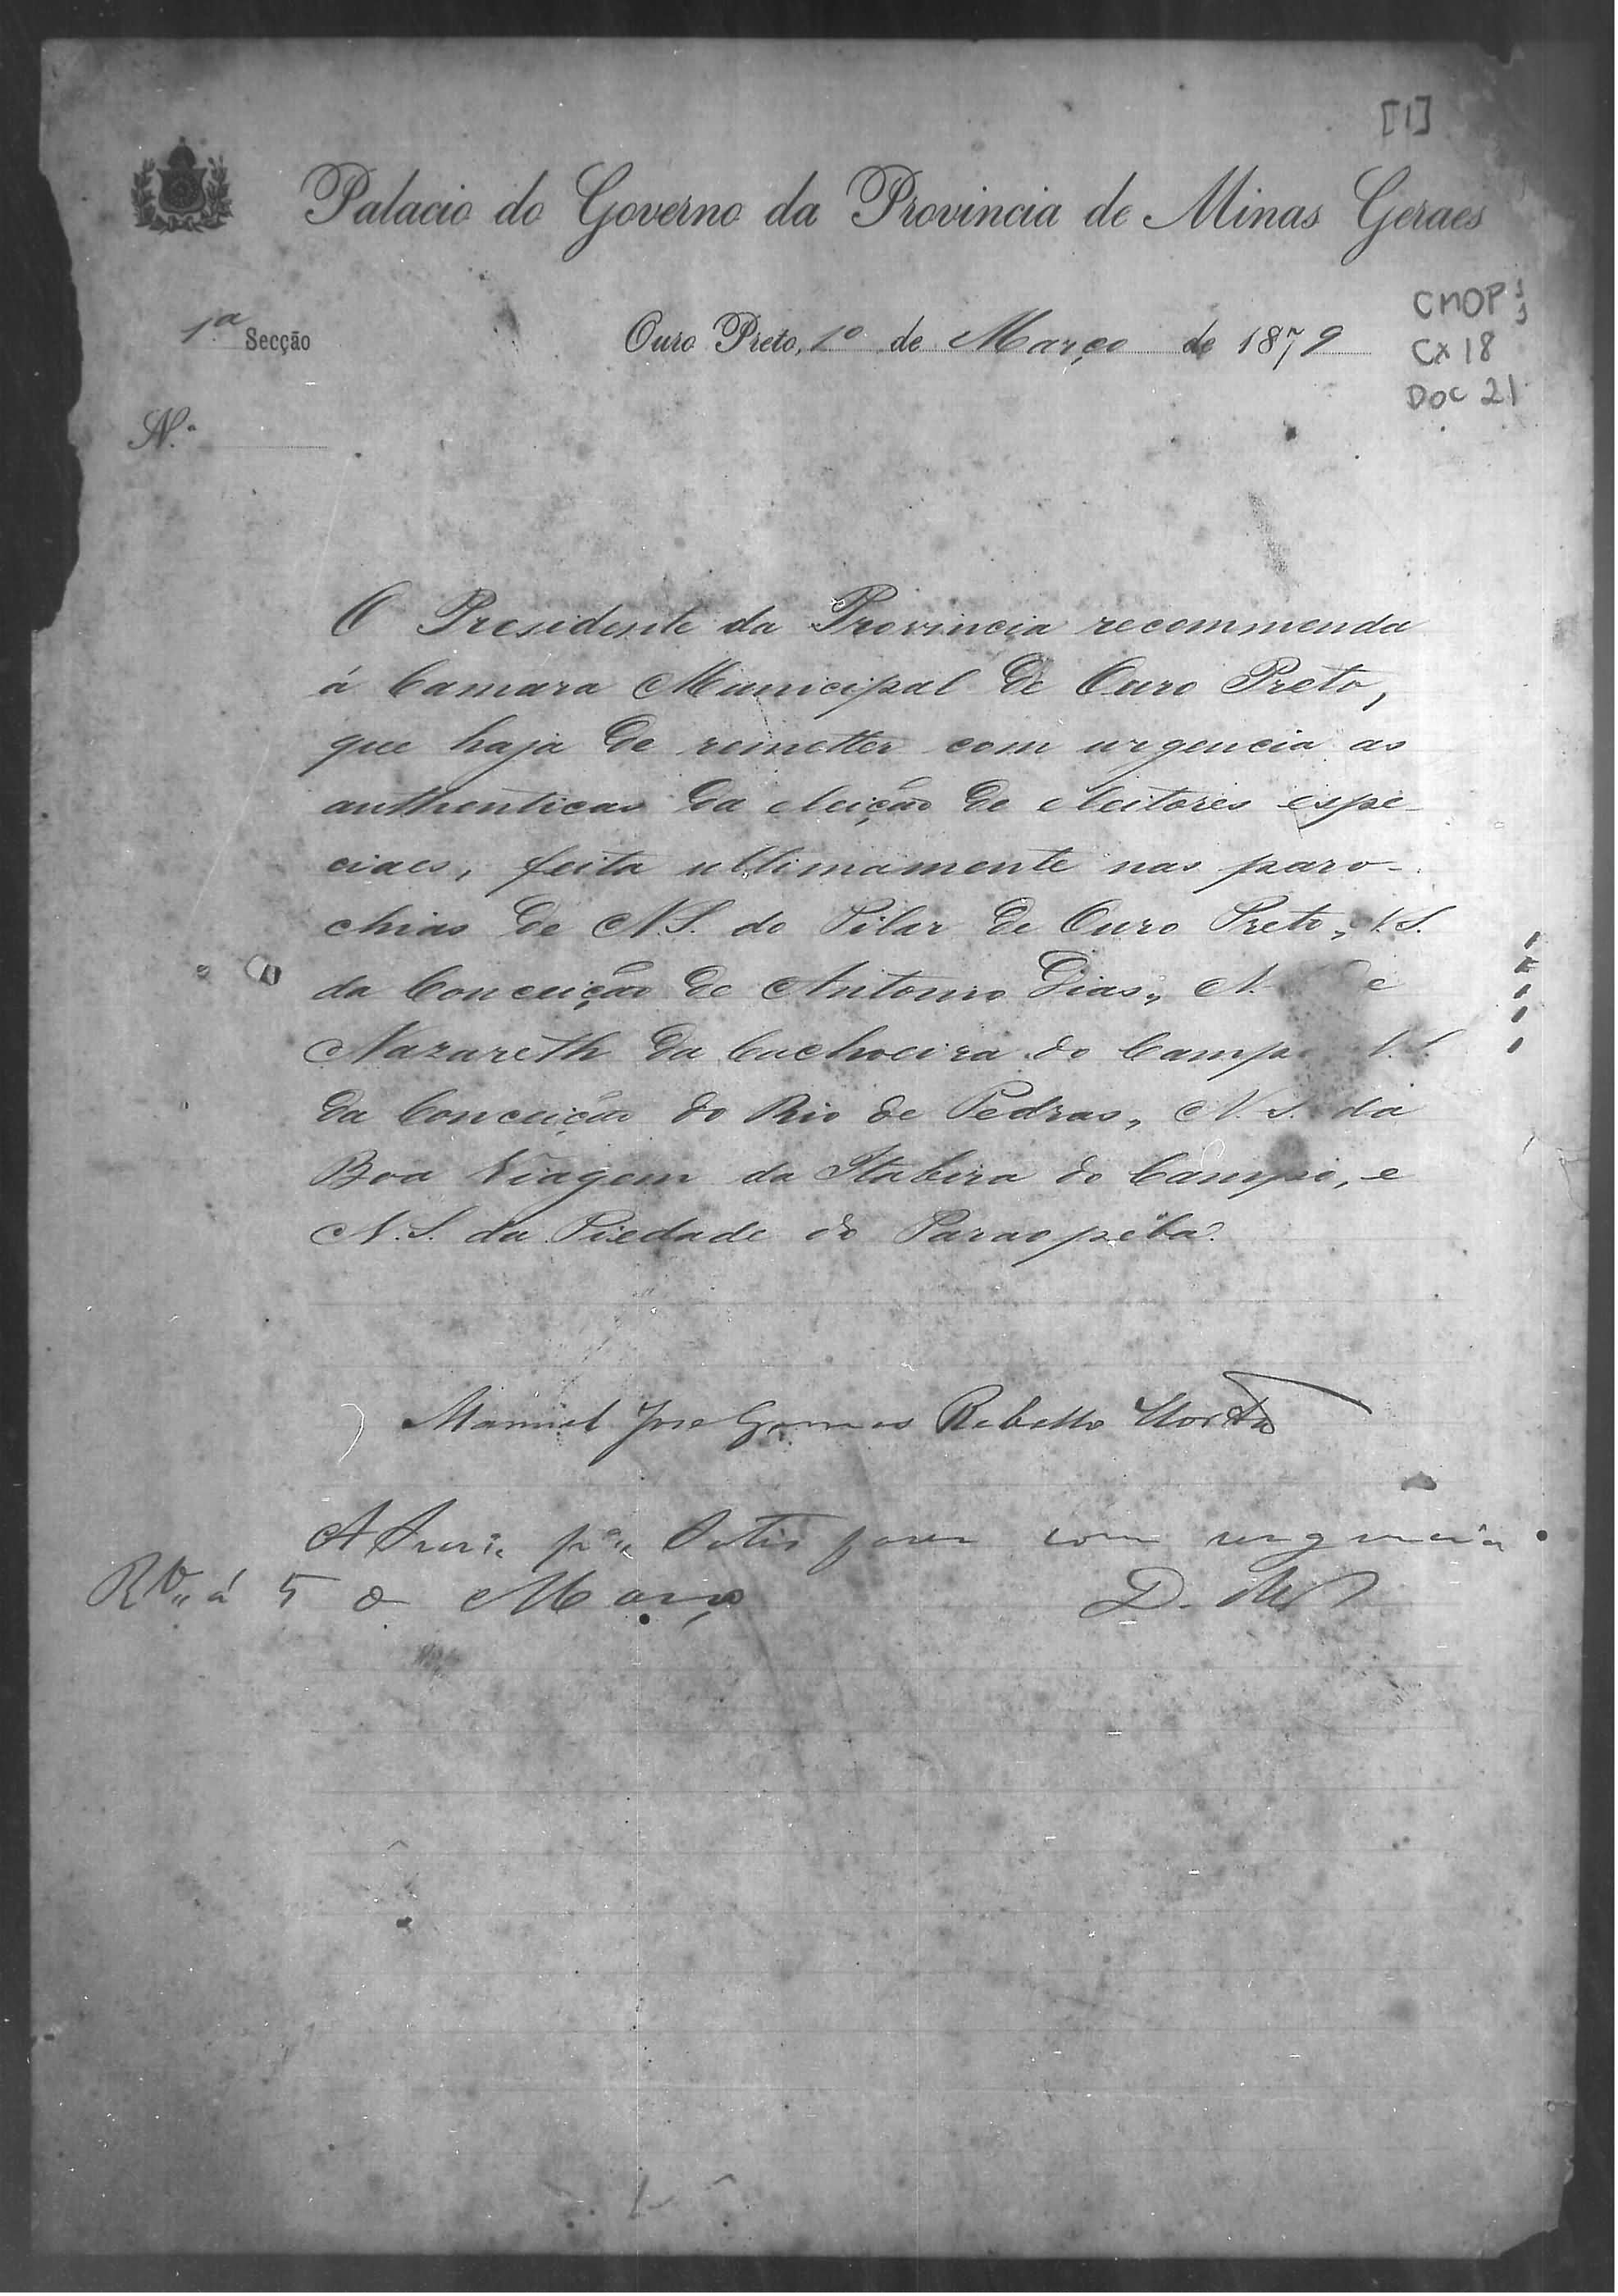 [1]
Palacio do Governo da Provincia de Minas Geraes
CMOP
1.ª Secção
Ouro Preto, 1º de Março de 1879
CX 18
DOC 21
N.º
O Presidente da Provincia recommenda
á Camara Municipal de Ouro Preto,
que haja de remetter com urgencia as
authenticas da eleição de eleitores espe-
ciaes, feita ultimamente nas paro-
chias de N. S. do Pilar de Ouro Preto, N. S.
da Conceição de Antonio Dias, N. de
Nazareth da Cachoeira do Campo N. S.
da Conceição do Rio de Pedras, N. S. da
Boa Viagem da Itabira do Campo, e
N. S. da Piedade do Paraopeba.
Manoel José Gomes Rebello Horta
A com urgencia
á 5 de Março